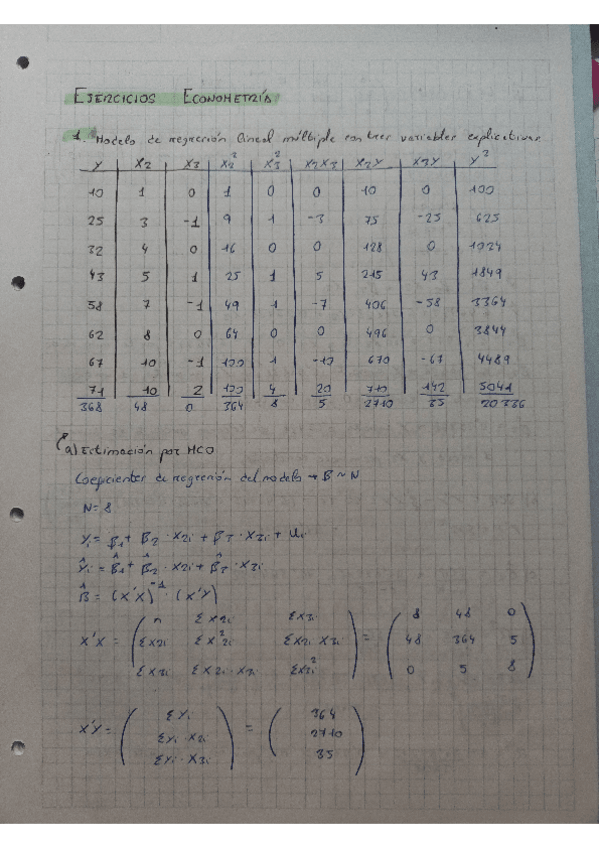 EJERCICIOS ECONOMETRÍA
1. Modelo de regresión lineal múltiple con tres variables explicativas
Y X2 X3 X2² X3² X2X3 X2Y X3Y Y²
10 1 0 1 0 0 10 0 100
25 3 -1 9 1 -3 75 -25 625
32 4 0 16 0 0 128 0 1024
43 5 1 25 1 5 215 43 1849
58 7 -1 49 1 -7 406 -58 3364
62 8 0 64 0 0 496 0 3844
67 10 -1 100 1 -10 670 -67 4489
71 10 2 100 4 20 710 142 5041
368 48 0 364 8 5 2710 35 20336
a) Estimación por MCO
Coeficientes de regresión del modelo → B ~ N
N = 8
Yi = β1 + β2 · X2i + β3 · X3i + Ui
Ŷi = β̂1 + β̂2 · X2i + β̂3 · X3i
β̂ = (X'X)⁻¹ · (X'Y)
n ΣX2i ΣX3i 8 48 0
X'X = ΣX2i ΣX²2i ΣX2i X3i = 48 364 5
ΣX3i ΣX2i · X3i ΣX3i² 0 5 8
ΣYi 364
X'Y = ΣYi · X2i = 2710
ΣYi · X3i 35